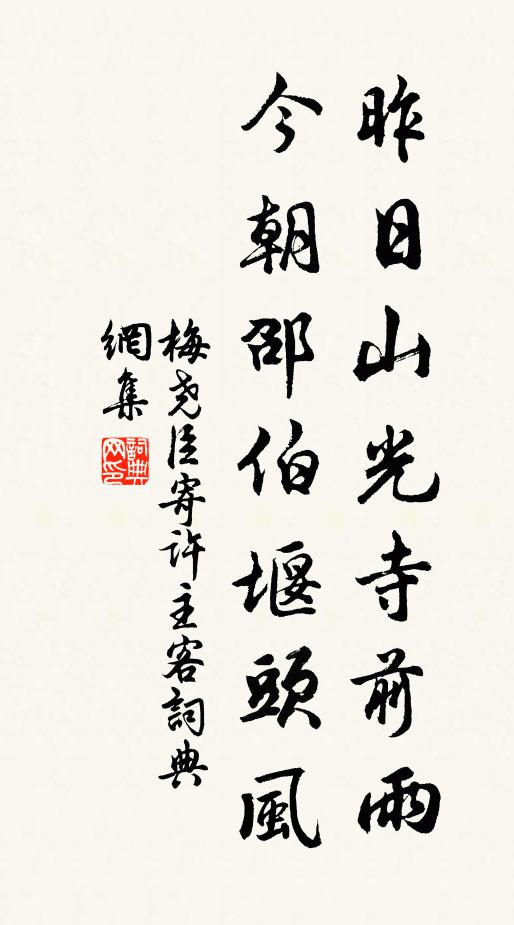 昨日山光寺前雨
今朝邵伯堰頭風
梅堯臣寄許主客詞典
網集
詞典
网印